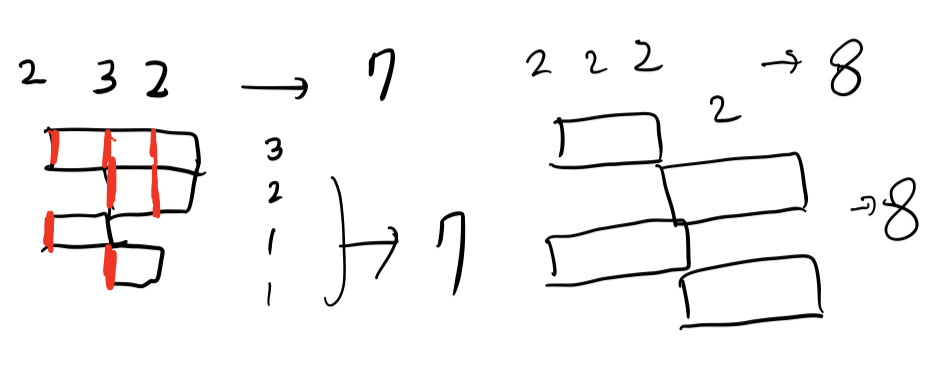 2 3 2 → 7
3
2
1
1
→ 7
2 2 2 2 → 8
→ 8